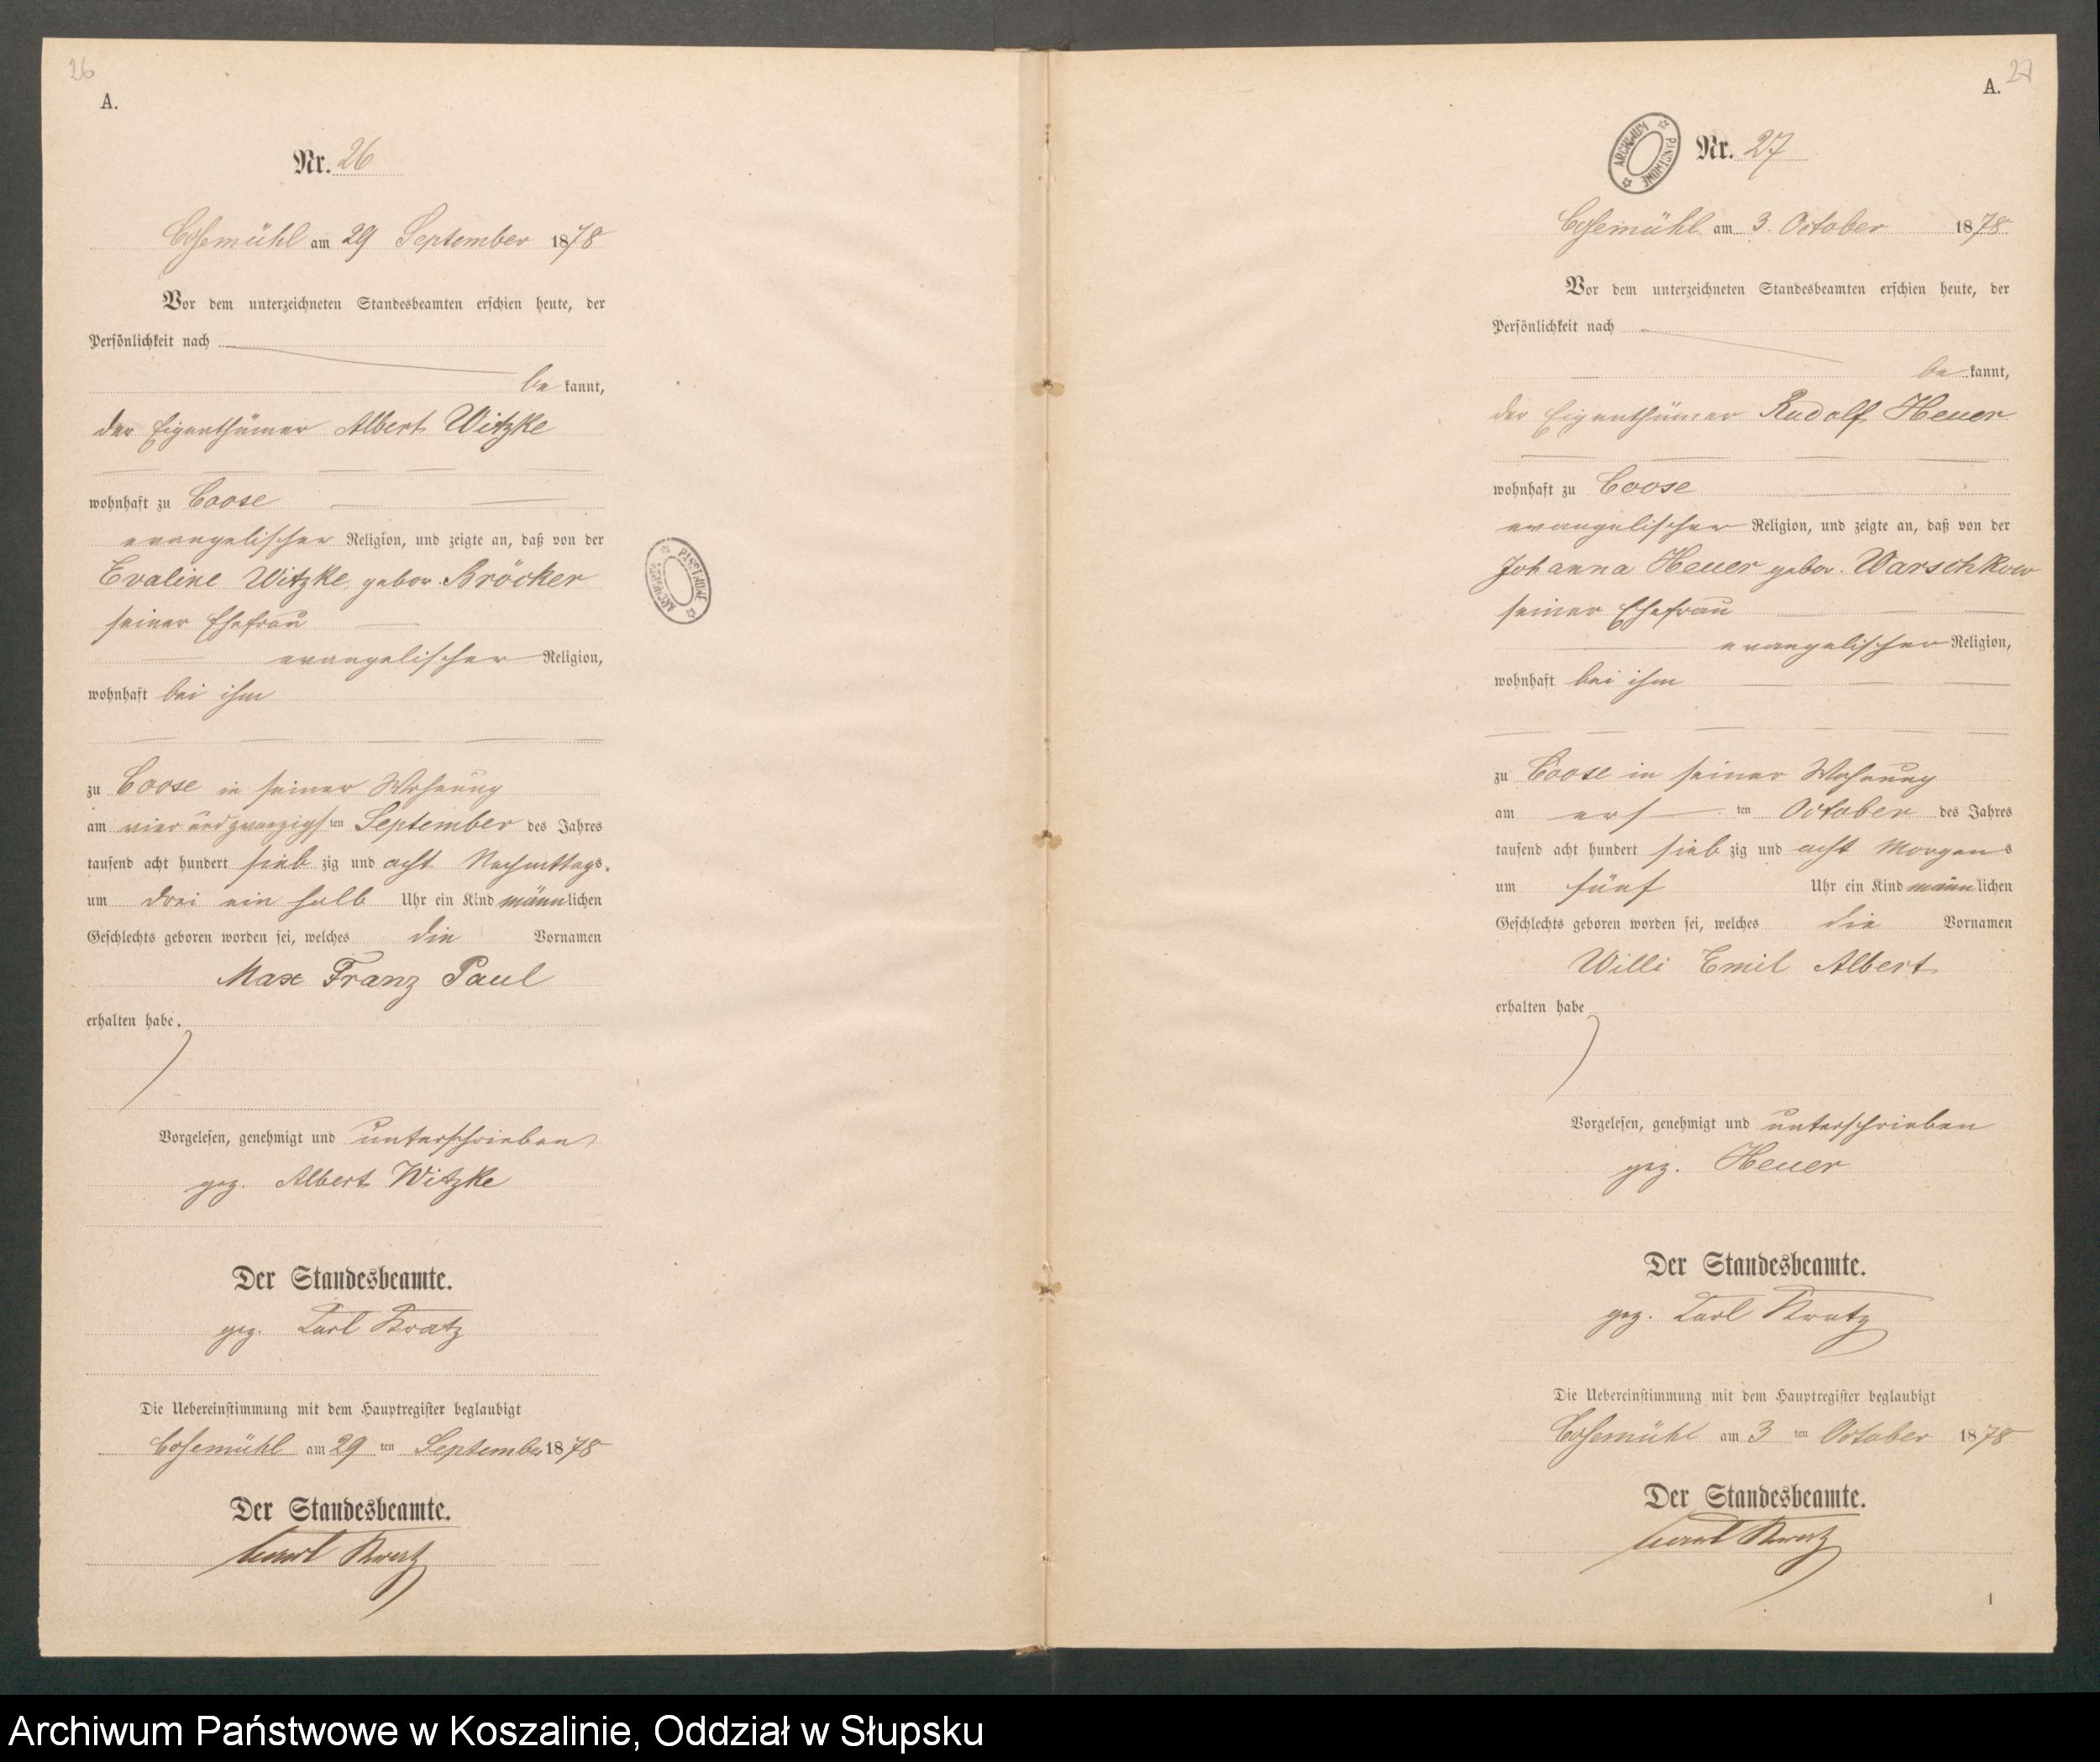 26
A.
Nr. 26
Cosemühl am 29 September 1878
Vor dem unterzeichneten Standesbeamten erschien heute, der
Persönlichkeit nach
be kannt,
der Eigenthümer Albert Witzke
wohnhaft zu Coose
evangelischer Religion, und zeigte an, daß von der
Eveline Witzke gebor. Bröcker
seiner Ehefrau
evangelischer Religion,
wohnhaft bei ihm
zu Coose in seiner Wohnung
am vier und zwanzigsten September des Jahres
tausend acht hundert sieb zig und acht Nachmittags.
um drei ein halb Uhr ein Kind männlichen
Geschlechts geboren worden sei, welches die Vornamen
Max Franz Paul
erhalten habe.
Vorgelesen, genehmigt und unterschrieben
gez. Albert Witzke
Der Standesbeamte.
gez. Carl Kratz
Die Uebereinstimmung mit dem Hauptregister beglaubigt
Cosemühl am 29 ten September 1878
Der Standesbeamte.
Carl Kratz
ARCHIWUM PAŃSTWOWE
27
A.
ARCHIWUM PAŃSTWOWE
Nr. 27
Cosemühl am 3. October 1878
Vor dem unterzeichneten Standesbeamten erschien heute, der
Persönlichkeit nach
be kannt,
der Eigenthümer Rudolf Heuer
wohnhaft zu Coose
evangelischer Religion, und zeigte an, daß von der
Johanna Heuer gebor. Warschkow
seiner Ehefrau
evangelischer Religion,
wohnhaft bei ihm
zu Coose in seiner Wohnung
am ers ten October des Jahres
tausend acht hundert sieb zig und acht Morgens
um fünf Uhr ein Kind männlichen
Geschlechts geboren worden sei, welches die Vornamen
Willi Emil Albert
erhalten habe
Vorgelesen, genehmigt und unterschrieben
gez. Heuer
Der Standesbeamte.
gez. Carl Kratz
Die Uebereinstimmung mit dem Hauptregister beglaubigt
Cosemühl am 3 ten October 1878
Der Standesbeamte.
Carl Kratz
1
Archiwum Państwowe w Koszalinie, Oddział w Słupsku